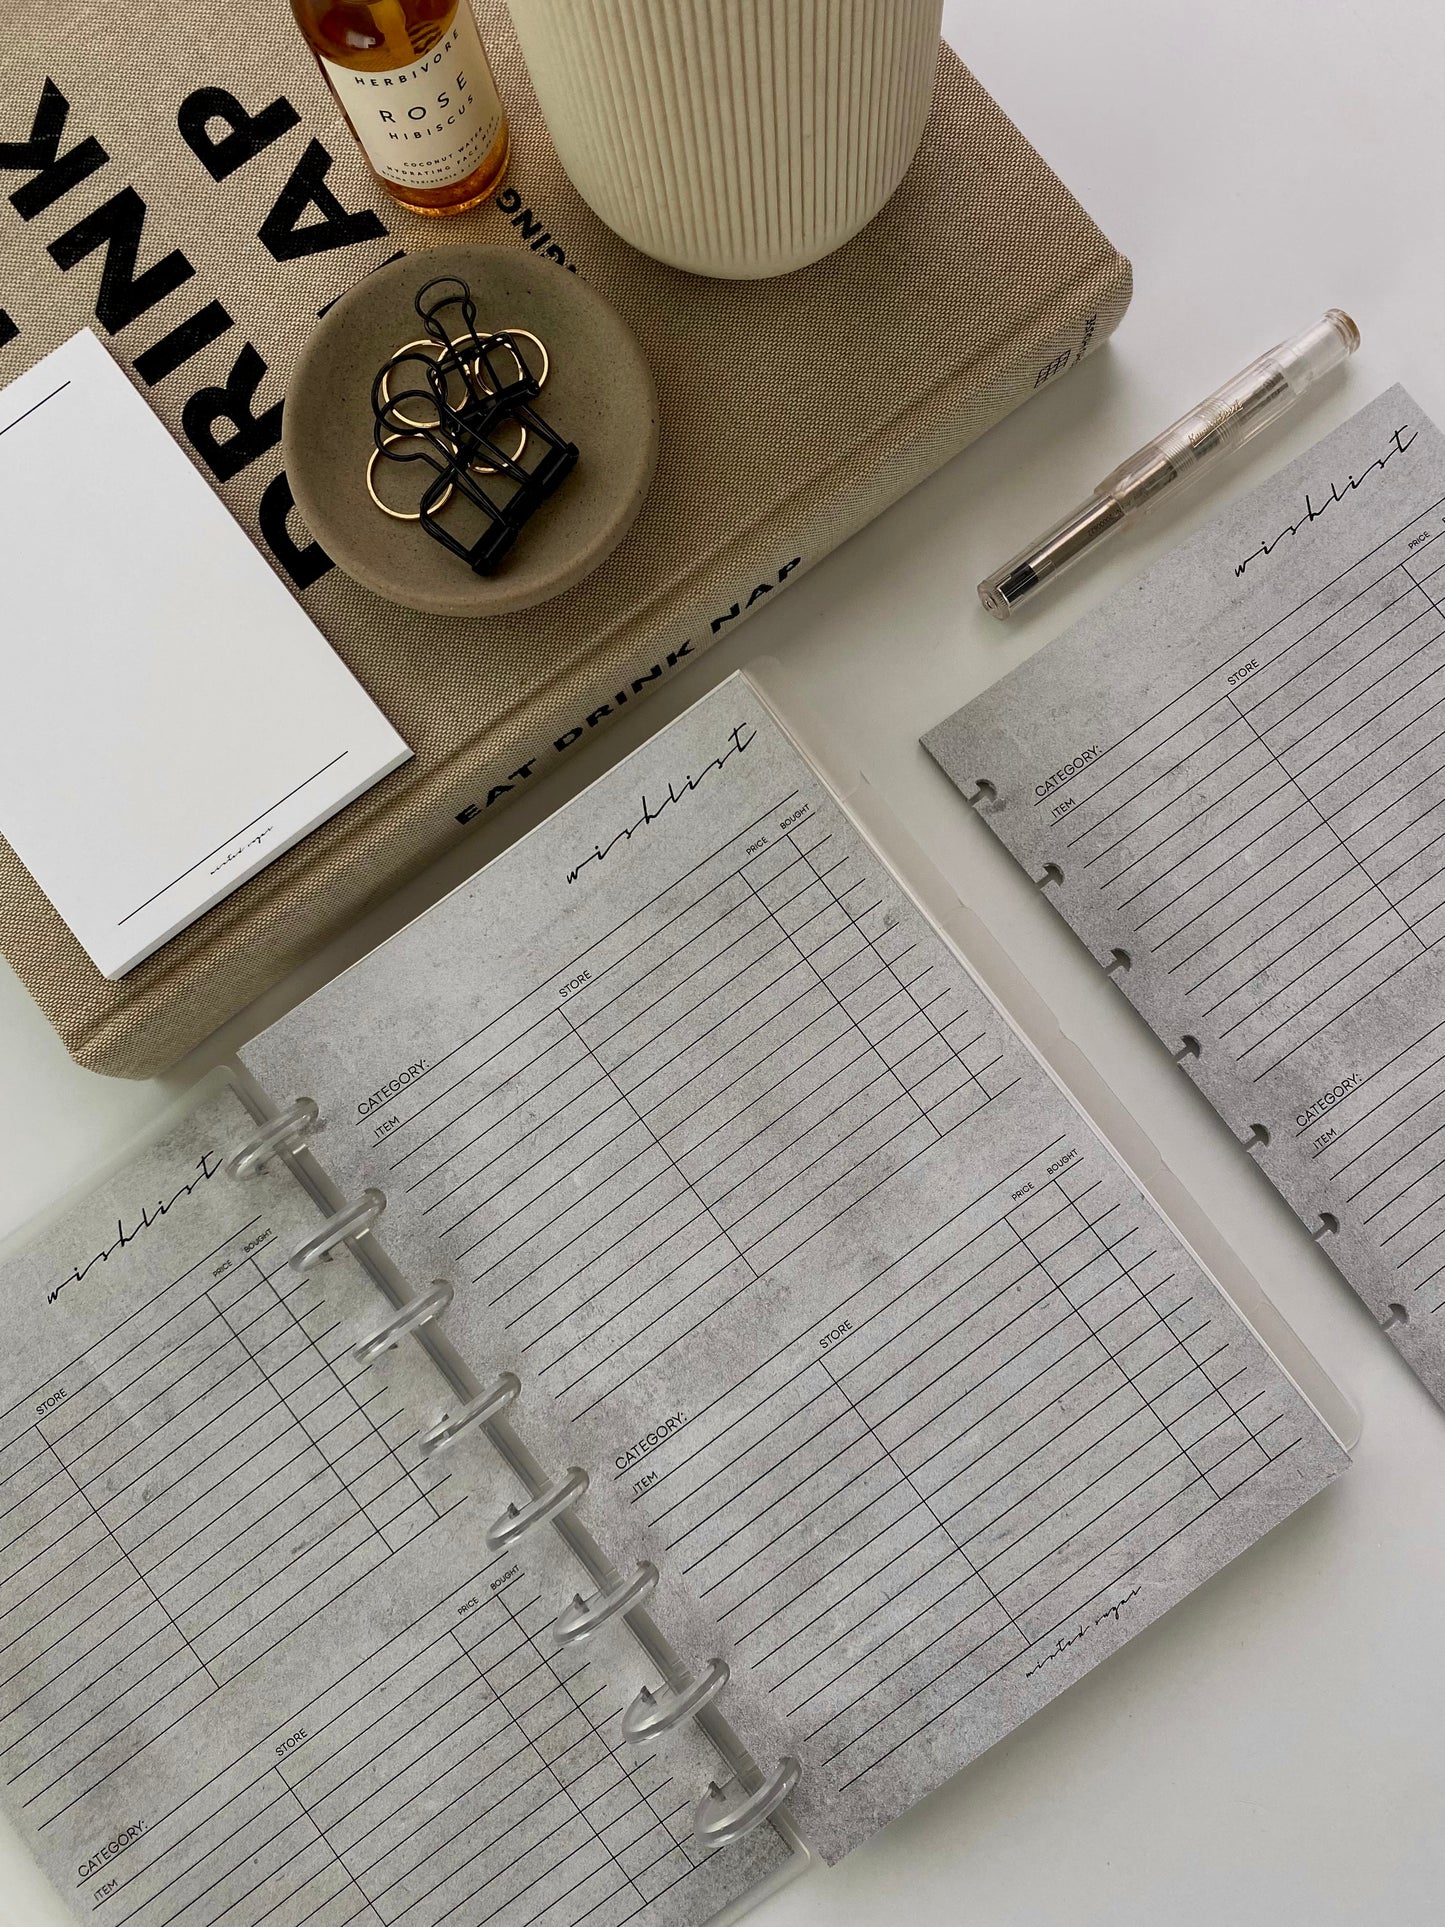 HERBIVORE
ROSE
HIBISCUS
COCONUT WATER
HYDRATING FACE MIST
DRINK
NAP
EAT DRINK NAP
minted sugar
wishlist
PRICE
BOUGHT
STORE
CATEGORY:
ITEM
PRICE
BOUGHT
STORE
CATEGORY:
ITEM
minted sugar
wishlist
PRICE
BOUGHT
STORE
PRICE
BOUGHT
STORE
CATEGORY:
ITEM
wishlist
PRICE
STORE
CATEGORY:
ITEM
CATEGORY:
ITEM